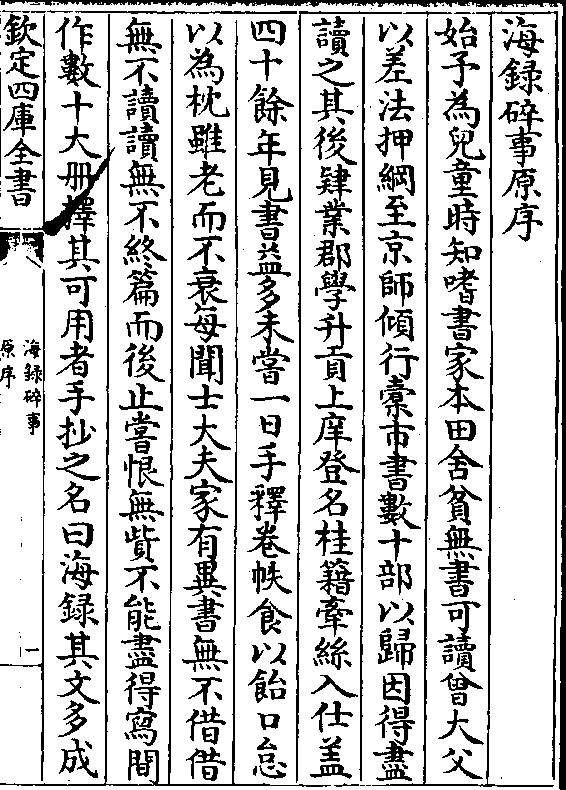 海録碎事原序
始予為兒童時知嗜書家本田舍貧無書可讀曾大父
以差法押綱至京師傾行橐市書數十部以歸因得盡
讀之其後肄業郡學升貢上庠登名桂籍牽絲入仕蓋
四十餘年見書益多未嘗一日手釋卷帙食以飴口怠
以為枕雖老而不衰每聞士大夫家有異書無不借借
無不讀讀無不終篇而後止嘗恨無貲不能盡得寫間
作數十大册擇其可用者手抄之名曰海録其文多成
欽定四庫全書
海録碎事
原序
一